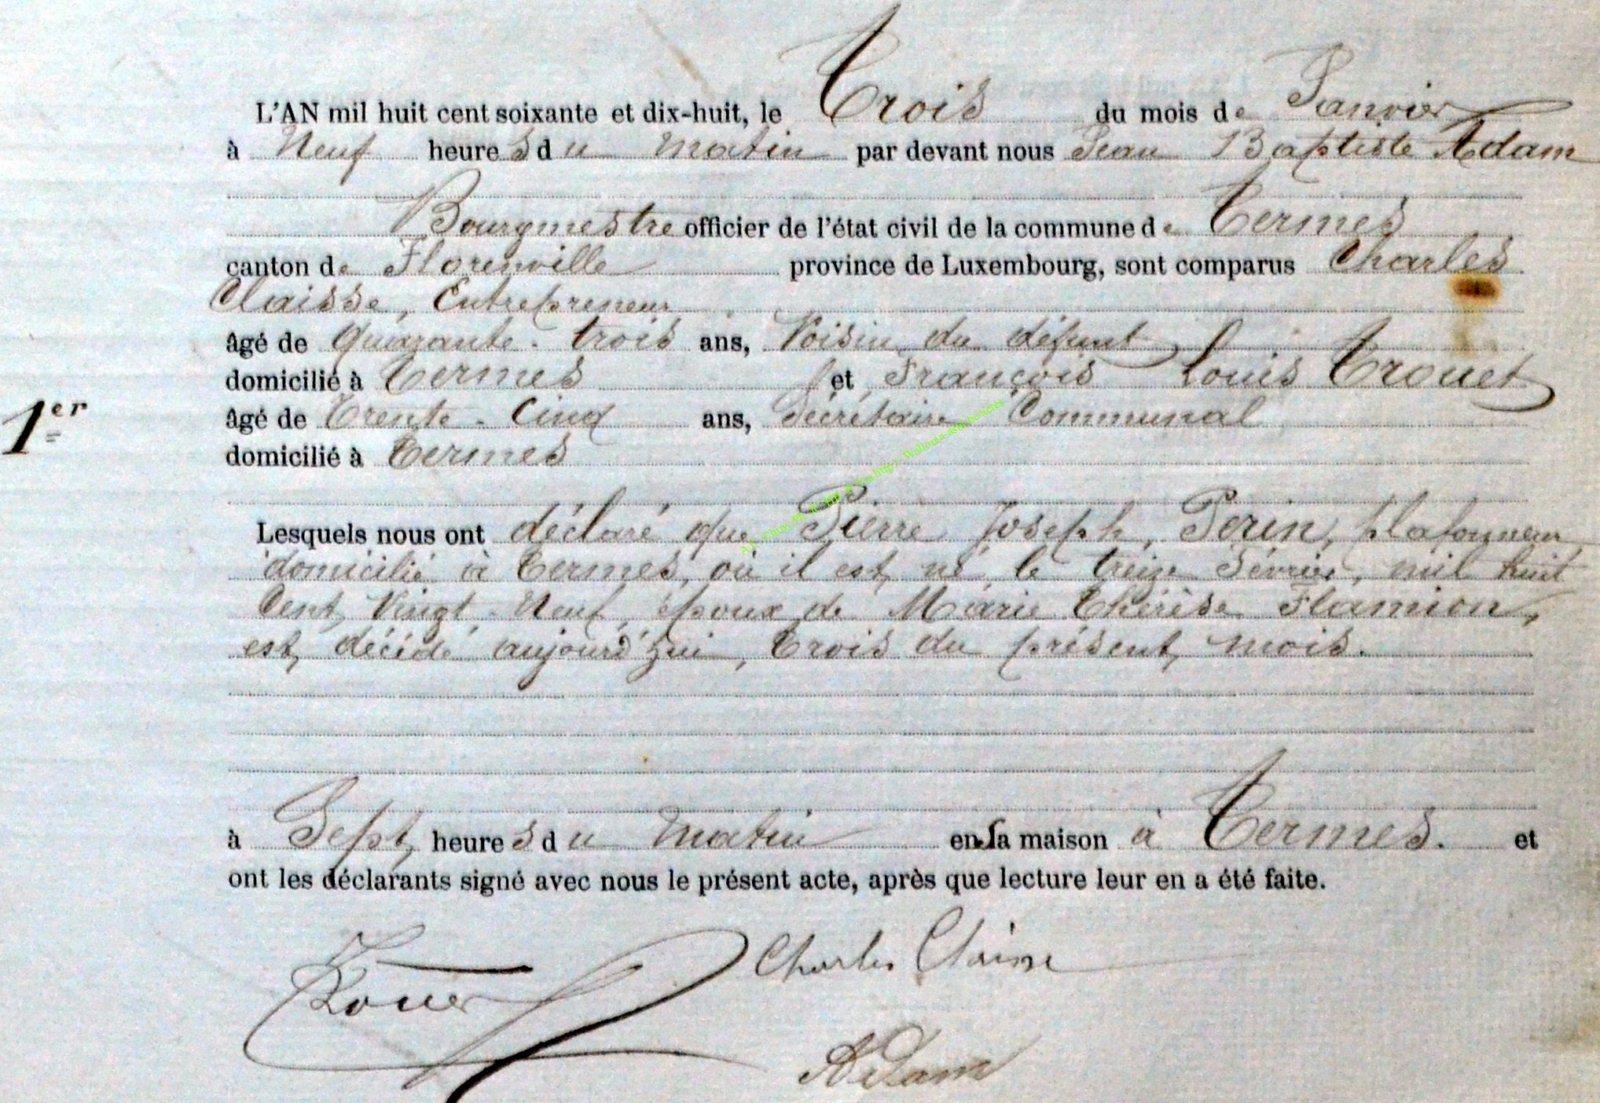 L'AN mil huit cent soixante et dix-huit, le Trois du mois de Janvier
à Neuf heures du matin par devant nous Jean Baptiste Adam
Bourgmestre officier de l'état civil de la commune de Termes
canton de Florenville province de Luxembourg, sont comparus Charles
Claisse, Entrepreneur
âgé de quarante-trois ans, Voisin du défunt
domicilié à Termes et François Louis Trouet
1er
âgé de Trente-Cinq ans, Secrétaire Communal
domicilié à Termes
Lesquels nous ont déclaré que Pierre Joseph, Perin, plafonneur
domicilié à Termes, où il est né, le treize Février, mil huit
Cent Vingt-Neuf, époux de Marie Thérèse Flamion,
est décédé aujourd'hui, Trois du présent mois.
à Sept heures du matin en sa maison à Termes. et
ont les déclarants signé avec nous le présent acte, après que lecture leur en a été faite.
Charles Claisse
Trouet
Adam